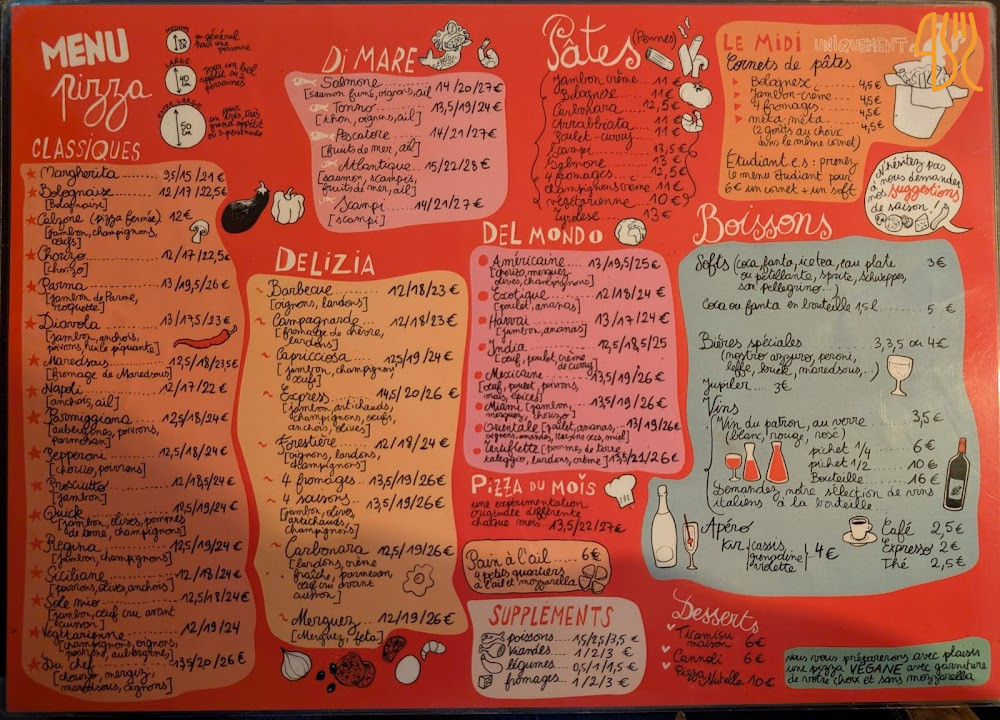 MENU
pizza
MEDIUM
en général
pour une
personne
LARGE
40
cm
pour un bel
appétit ou 2
personnes
EXTRA LARGE
50
cm
pour
un très, très
grand appétit
ou 3 personnes
CLASSIQUES
Margherita 9,5/15/21€
Bolognaise 12/17/22,5€
[Bolognais]
Calzone (pizza fermée) 12€
[jambon, champignons,
œufs]
Chorizo 12/17/22,5€
[chorizo]
Parma 13/19,5/26€
[jambon de Parme,
roquette]
Diavola 13/17,5/23€
[jambon, anchois,
poivrons, huile piquante]
Maredsous 12,5/18/23,5€
[fromage de Maredsous]
Napoli 12/17/22€
[anchois, ail]
Parmiggiana 12,5/18/24€
[aubergines, poivrons,
parmesan]
Pepperoni 12,5/18/24€
[chorizo, poivrons]
Prosciutto 12/18,5/24€
[jambon]
Quick 12,5/19/24€
[jambon, olives, pommes
de terre, champignons]
Régina 12,5/19/24€
[jambon, champignons]
Siciliane 12/18/24€
[poivrons, olives, anchois]
Sole mio 12,5/18/24€
[jambon, œuf cru avant
cuisson]
Végétarienne 12/19/24
[champignons, oignons,
poivrons, aubergines]
Du chef 13,5/20/26€
[chorizo, merguez,
maredsous, oignons]
Di MARE
Salmone 14/20/27€
[saumon fumé, oignons, ail]
Tonno 13,5/19/24€
[thon, oignons, ail]
Pescatore 14/21/27€
[fruits de mer, ail]
Atlantique 15/22/28€
[saumon, scampis,
fruits de mer, ail]
Scampi 14/21/27€
[scampi]
DELIZIA
Barbecue 12/18/23€
[oignons, lardons]
Campagnarde 12/18/23€
[fromage de chèvre,
lardons]
Capricciosa 12,5/19/24€
[jambon, champignons,
œufs]
Express 14,5/20/26€
[jambon, artichauds,
champignons, œufs,
anchois, olives]
Forestière 12/18/24€
[oignons, lardons,
champignons]
4 fromages 13,5/19/26€
4 saisons 13,5/19/26€
[jambon, olives,
artichauds,
champignons]
Carbonara 12,5/19/26€
[lardons, crème
fraîche, parmesan
œuf cru avant
cuisson]
Merguez 12/19/26€
[Merguez, feta]
Pâtes (Pennes)
Jambon crème 11€
Bolognese 11€
Carbonara 12,5€
Arrabbiata 11€
Poulet-curry 11€
Scampi 13,5€
Salmone 13€
4 fromages 12,5€
Champignons crème 11€
végétarienne 10€
Tyrolese 13€
DEL MONDO
Américaine 13/19,5/25€
[chorizo, merguez,
olives, champignons]
Exotique 12/18/24€
[poulet, ananas]
Hawaï 13/17/24€
[jambon, ananas]
India 12,5/18,5/25
[œuf, poulet, crème
de curry]
Mexicaine 13,5/19/26€
[œuf, poulet, poivrons
maïs, épices]
Miami [jambon, 13,5/19/26€
merguez, chorizo]
Orientale [poulet, ananas, 13/19/26€
oignons, amandes, raisins secs, miel]
Tartiflette [pommes de terre,
taleggio, lardons, crème] 13,5/21/26€
PIZZA DU MOIS
une expérimentation
originale différente
chaque mois 13,5/22/27€
Pain à l'ail 6€
4 petits quartiers
à l'ail et mozzarella
SUPPLEMENTS
poissons 1,5/2,5/3,5€
Viandes 1/2/3€
légumes 0,5/1/1,5€
fromages 1/2/3€
LE MIDI UNIQUEMENT
Cornets de pâtes
Bolognese 4,5€
Jambon-crème 4,5€
4 fromages 4,5€
méta-méta 4,5€
(2 goûts au choix
dans le même cornet)
Étudiant.e.s : prenez
le menu étudiant pour
6€ un cornet + un soft
N'hésitez pas
à nous demander
nos suggestions
de saison !
Boissons
Softs (coca, fanta, icetea, eau plate 3€
ou pétillante, sprite, schweppes,
san pellegrino...)
Coca ou fanta en bouteille 1,5l 5€
Bières spéciales 3, 3,5 ou 4€
(nostro azzuro, peroni,
leffe, kriek, maredsous,...)
Jupiler 3€
Vins
Vin du patron, au verre 3,5€
(blanc, rouge, rosé)
pichet 1/4 6€
pichet 1/2 10€
Bouteille 16€
Demandez notre sélection de vins
italiens à la bouteille
Apéro
Kir cassis 4€
grenadine
violette
Café 2,5€
Expresso 2€
Thé 2,5€
Desserts
Tiramisu
maison 6€
Cannoli 6€
Pizza
Nutella 10€
nous vous préparerons avec plaisir
une pizza VEGANE avec garniture
de votre choix et sans mozzarella